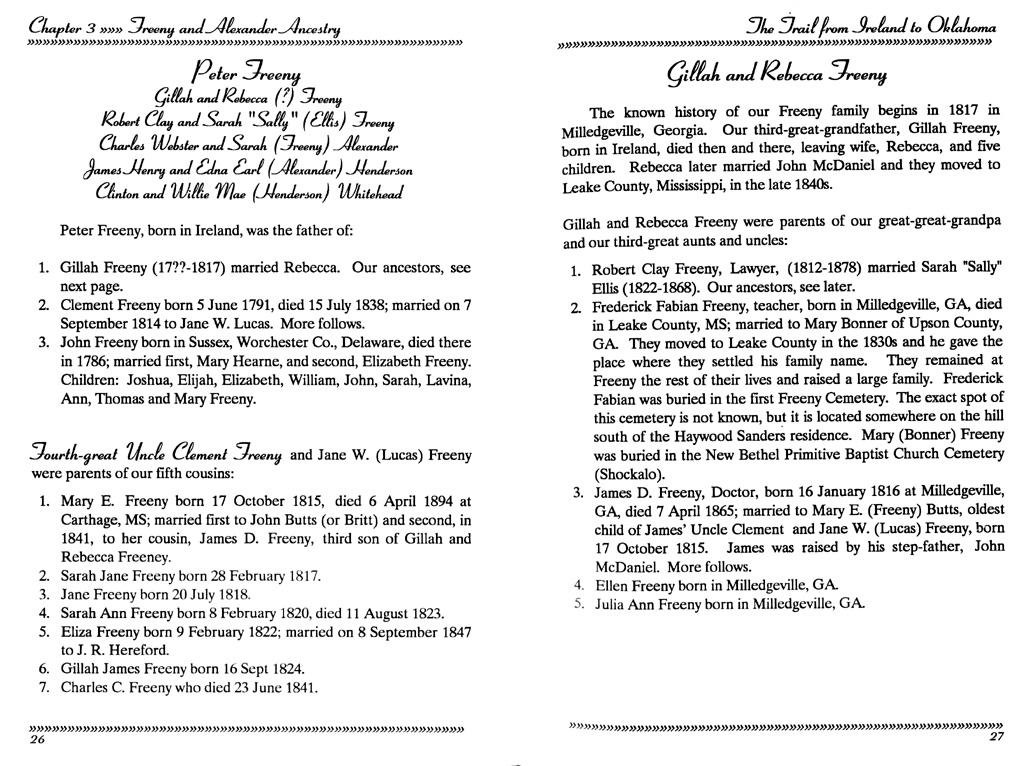 Chapter 3 »»» Freeny and Alexander Ancestry
»»»»»»»»»»»»»»»»»»»»»»»»»»»»»»»»»»»»»»»»»»»»»»»»»»»»»»»»
Peter Freeny
Gillah and Rebecca (?) Freeny
Robert Clay and Sarah "Sally" (Ellis) Freeny
Charles Webster and Sarah (Freeny) Alexander
James Henry and Edna Earl (Alexander) Henderson
Clinton and Willie Mae (Henderson) Whitehead
Peter Freeny, born in Ireland, was the father of:
1. Gillah Freeny (17??-1817) married Rebecca. Our ancestors, see
next page.
2. Clement Freeny born 5 June 1791, died 15 July 1838; married on 7
September 1814 to Jane W. Lucas. More follows.
3. John Freeny born in Sussex, Worchester Co., Delaware, died there
in 1786; married first, Mary Hearne, and second, Elizabeth Freeny.
Children: Joshua, Elijah, Elizabeth, William, John, Sarah, Lavina,
Ann, Thomas and Mary Freeny.
Fourth-great Uncle Clement Freeny and Jane W. (Lucas) Freeny
were parents of our fifth cousins:
1. Mary E. Freeny born 17 October 1815, died 6 April 1894 at
Carthage, MS; married first to John Butts (or Britt) and second, in
1841, to her cousin, James D. Freeny, third son of Gillah and
Rebecca Freeney.
2. Sarah Jane Freeny born 28 February 1817.
3. Jane Freeny born 20 July 1818.
4. Sarah Ann Freeny born 8 February 1820, died 11 August 1823.
5. Eliza Freeny born 9 February 1822; married on 8 September 1847
to J. R. Hereford.
6. Gillah James Freeny born 16 Sept 1824.
7. Charles C. Freeny who died 23 June 1841.
»»»»»»»»»»»»»»»»»»»»»»»»»»»»»»»»»»»»»»»»»»»»»»»»»»»»»»»»
26
The Trail from Ireland to Oklahoma
»»»»»»»»»»»»»»»»»»»»»»»»»»»»»»»»»»»»»»»»»»»»»»»»»»»»»»»»
Gillah and Rebecca Freeny
The known history of our Freeny family begins in 1817 in
Milledgeville, Georgia. Our third-great-grandfather, Gillah Freeny,
born in Ireland, died then and there, leaving wife, Rebecca, and five
children. Rebecca later married John McDaniel and they moved to
Leake County, Mississippi, in the late 1840s.
Gillah and Rebecca Freeny were parents of our great-great-grandpa
and our third-great aunts and uncles:
1. Robert Clay Freeny, Lawyer, (1812-1878) married Sarah "Sally"
Ellis (1822-1868). Our ancestors, see later.
2. Frederick Fabian Freeny, teacher, born in Milledgeville, GA, died
in Leake County, MS; married to Mary Bonner of Upson County,
GA. They moved to Leake County in the 1830s and he gave the
place where they settled his family name. They remained at
Freeny the rest of their lives and raised a large family. Frederick
Fabian was buried in the first Freeny Cemetery. The exact spot of
this cemetery is not known, but it is located somewhere on the hill
south of the Haywood Sanders residence. Mary (Bonner) Freeny
was buried in the New Bethel Primitive Baptist Church Cemetery
(Shockalo).
3. James D. Freeny, Doctor, born 16 January 1816 at Milledgeville,
GA, died 7 April 1865; married to Mary E. (Freeny) Butts, oldest
child of James' Uncle Clement and Jane W. (Lucas) Freeny, born
17 October 1815. James was raised by his step-father, John
McDaniel. More follows.
4. Ellen Freeny born in Milledgeville, GA.
5. Julia Ann Freeny born in Milledgeville, GA.
»»»»»»»»»»»»»»»»»»»»»»»»»»»»»»»»»»»»»»»»»»»»»»»»»»»»»»»»
27